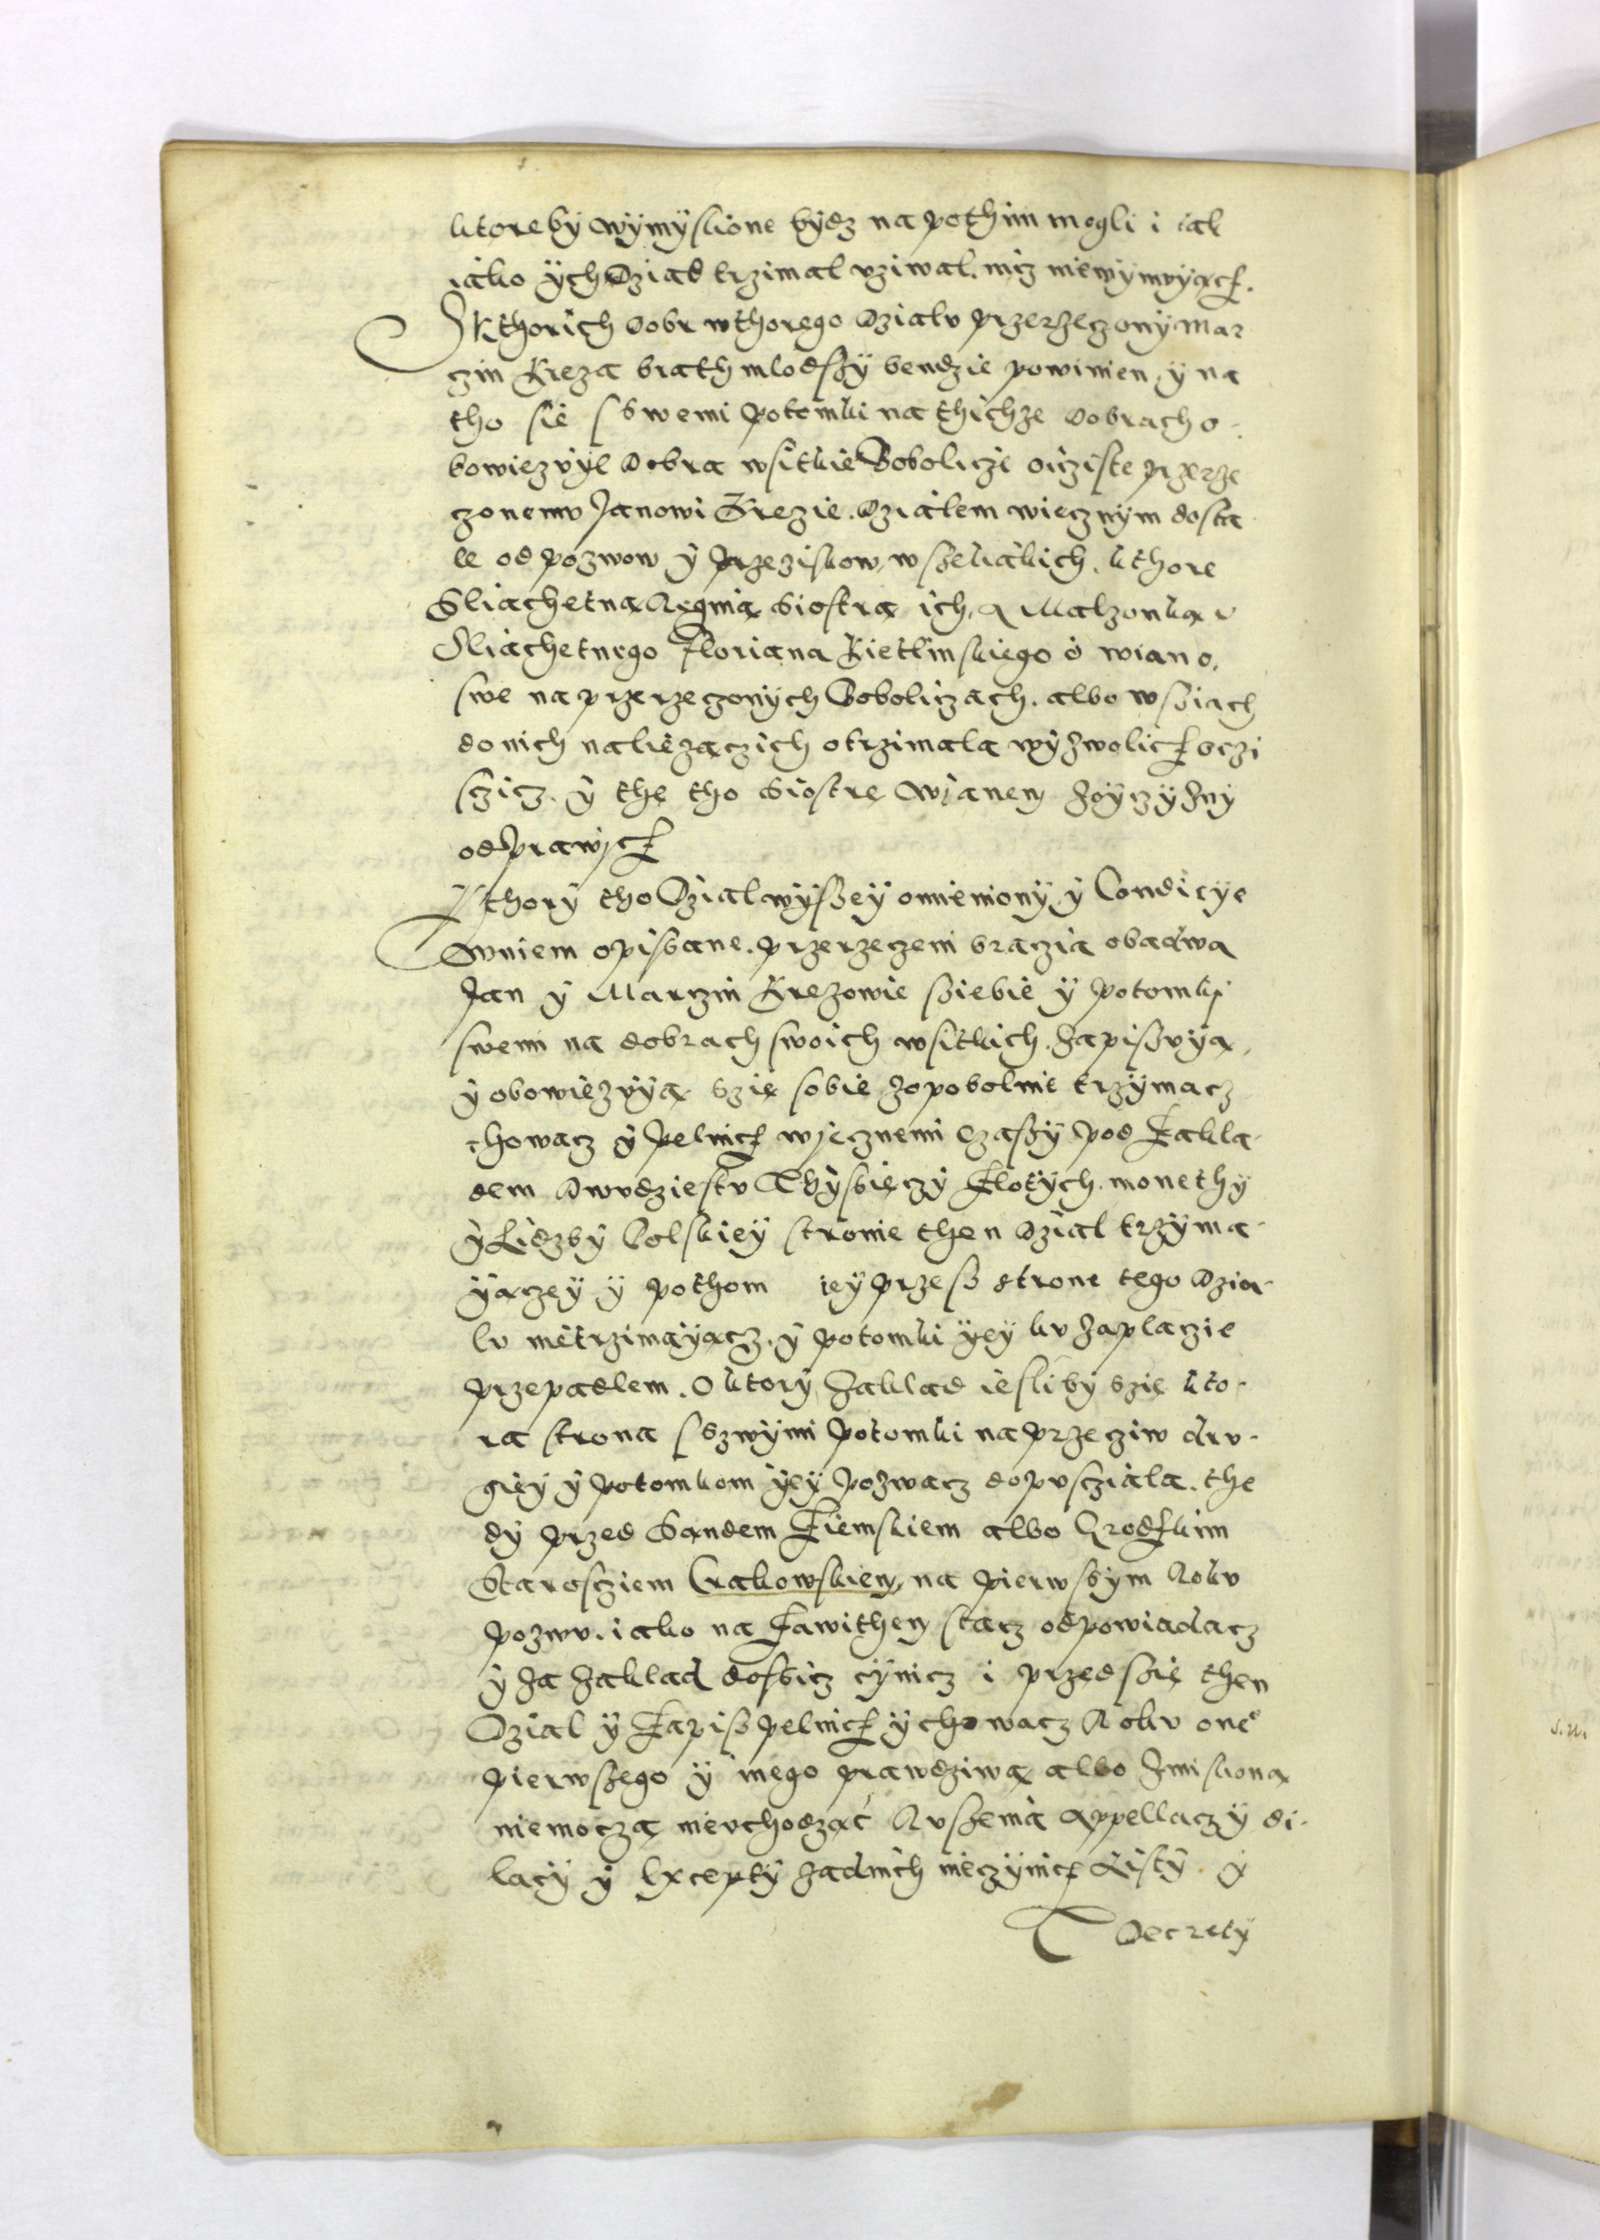 ktoreby wymyslione bydz na pothim mogli i iak
iako ych Dziad trzimal vziwal. nicz niewymvyącz.
Z kthorich dobr wthorego działv przerzeczony Mar
czin Kreza brath mlodszy bendzie powinien y na
tho sie s swemi potomki na thichze dobrach o-
bowiezvyl Dobra wsitkie Bobolicze oicziste przerze
czonemv Janowi Krezie. Dzialem wiecznym dosta
le od pozwow y przeziskow wszeliakich. kthore
Sliachetna Regina Siostra ich, a Malzonka v
Sliachetnego Floriana Kietlinskiego o wiano,
swe na przerzeczonych Boboliczach. albo wsiach
do nich naliezączich otrzimala wyzwolicz oczi
sczicz. y the tho Siostre Wianem zoyczyzny
odprawicz
Kthory tho Dzial wyszey omieniony y Condicye
wniem opisane. przerzeczeni braczia obadwa
Jan y Marczin Krezowie sziebie y potomky
swemi na dobrach swoich wsitkich. zapiszvya,
y obowiezvya szie sobie zopobolnie trzymacz
chowacz y pelnicz wiecznemi Czaszy pod Zakla-
dem Dwvdziestv Thysieczy Zlotych. monethy
y Lidzby Polskiey stronie then dzial trzyma-
yączey y pothom iey przesz strone tego dzia-
lv nietrzimayącz. y potomki yey kv zaplaczie
przepadlem. O ktory zaklad iesliby szie kto-
ra strona s szwymi potomki naprzeciw drv-
giey y potomkom yey pozwacz dopvsciala. the
dy przed Sandem Ziemskiem albo Grodzkim
Starosciem Crakowskiem, na pierwszym Rokv
pozwv. iako na Zawithem stacz odpowiadacz
y za zaklad dosicz cynicz i przedszie then
Dzial y Zapis pelnicz y chowacz Rokv one°
pierwszego y inego prawdziwą albo zmisloną
niemoczą nievchodząc Rvszenia appellaczy di-
laciy y Excepty zadnich nieczynicz Listy y
Decrety